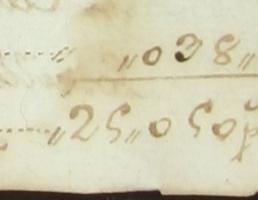 "038"
"25"050p